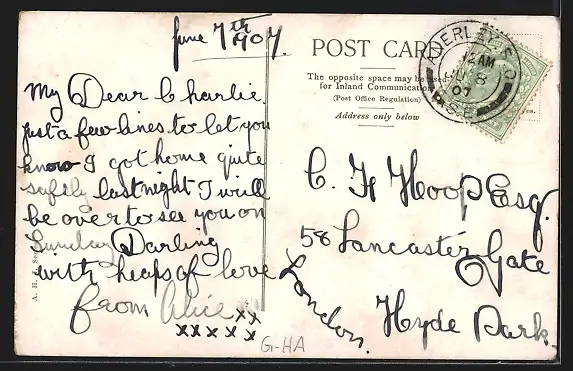 June 7th 1907.
My Dear Charlie
Just a few lines to let you
know I got home quite
safely last night I will
be over to see you on
Sunday Darling
with heaps of love
from Alice xx
xxxxx
POST CARD
The opposite space may be used
for Inland Communication
(Post Office Regulation)
Address only below
12 AM
8
07
S.E.
C. H Hoop Esq.
58 Lancaster Gate
Hyde Park.
London.
G-HA
A. H. &